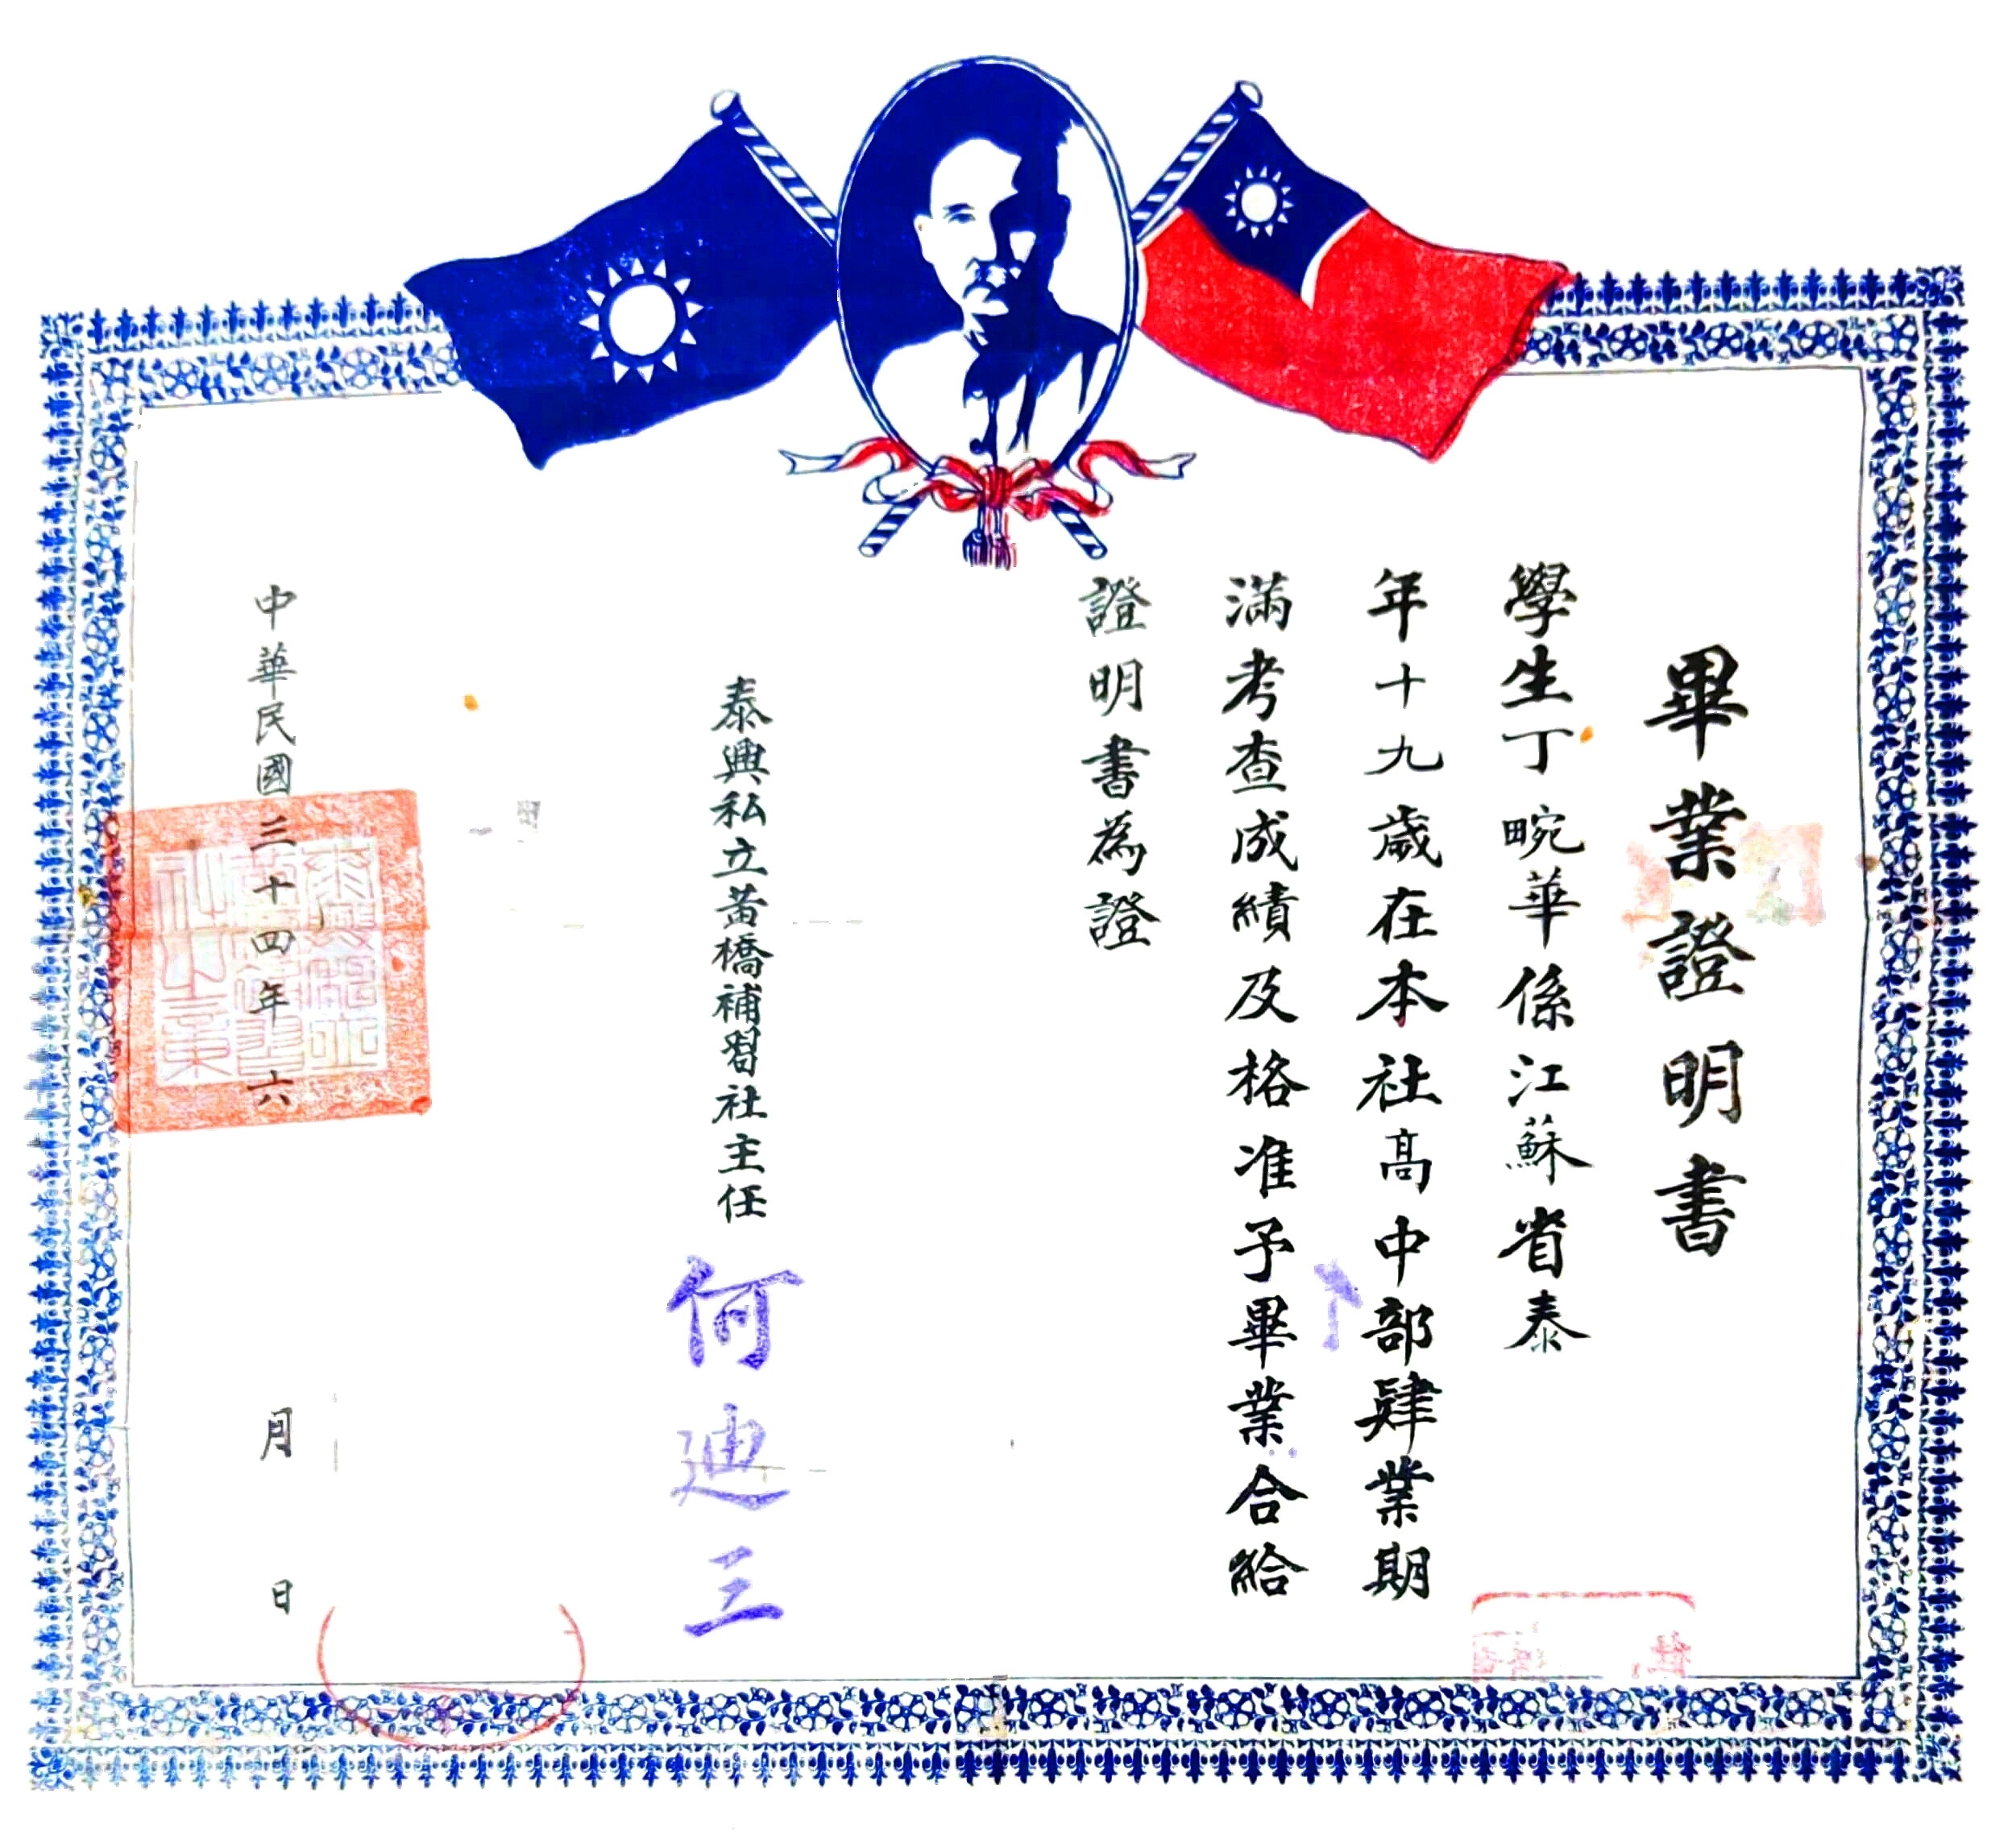 畢業證明書
學生丁畹華係江蘇省泰
年十九歲在本社高中部肄業期
滿考查成績及格准予畢業合給
證明書為證
泰興私立黃橋補習社主任
何迪三
中華民國三十四年六月日